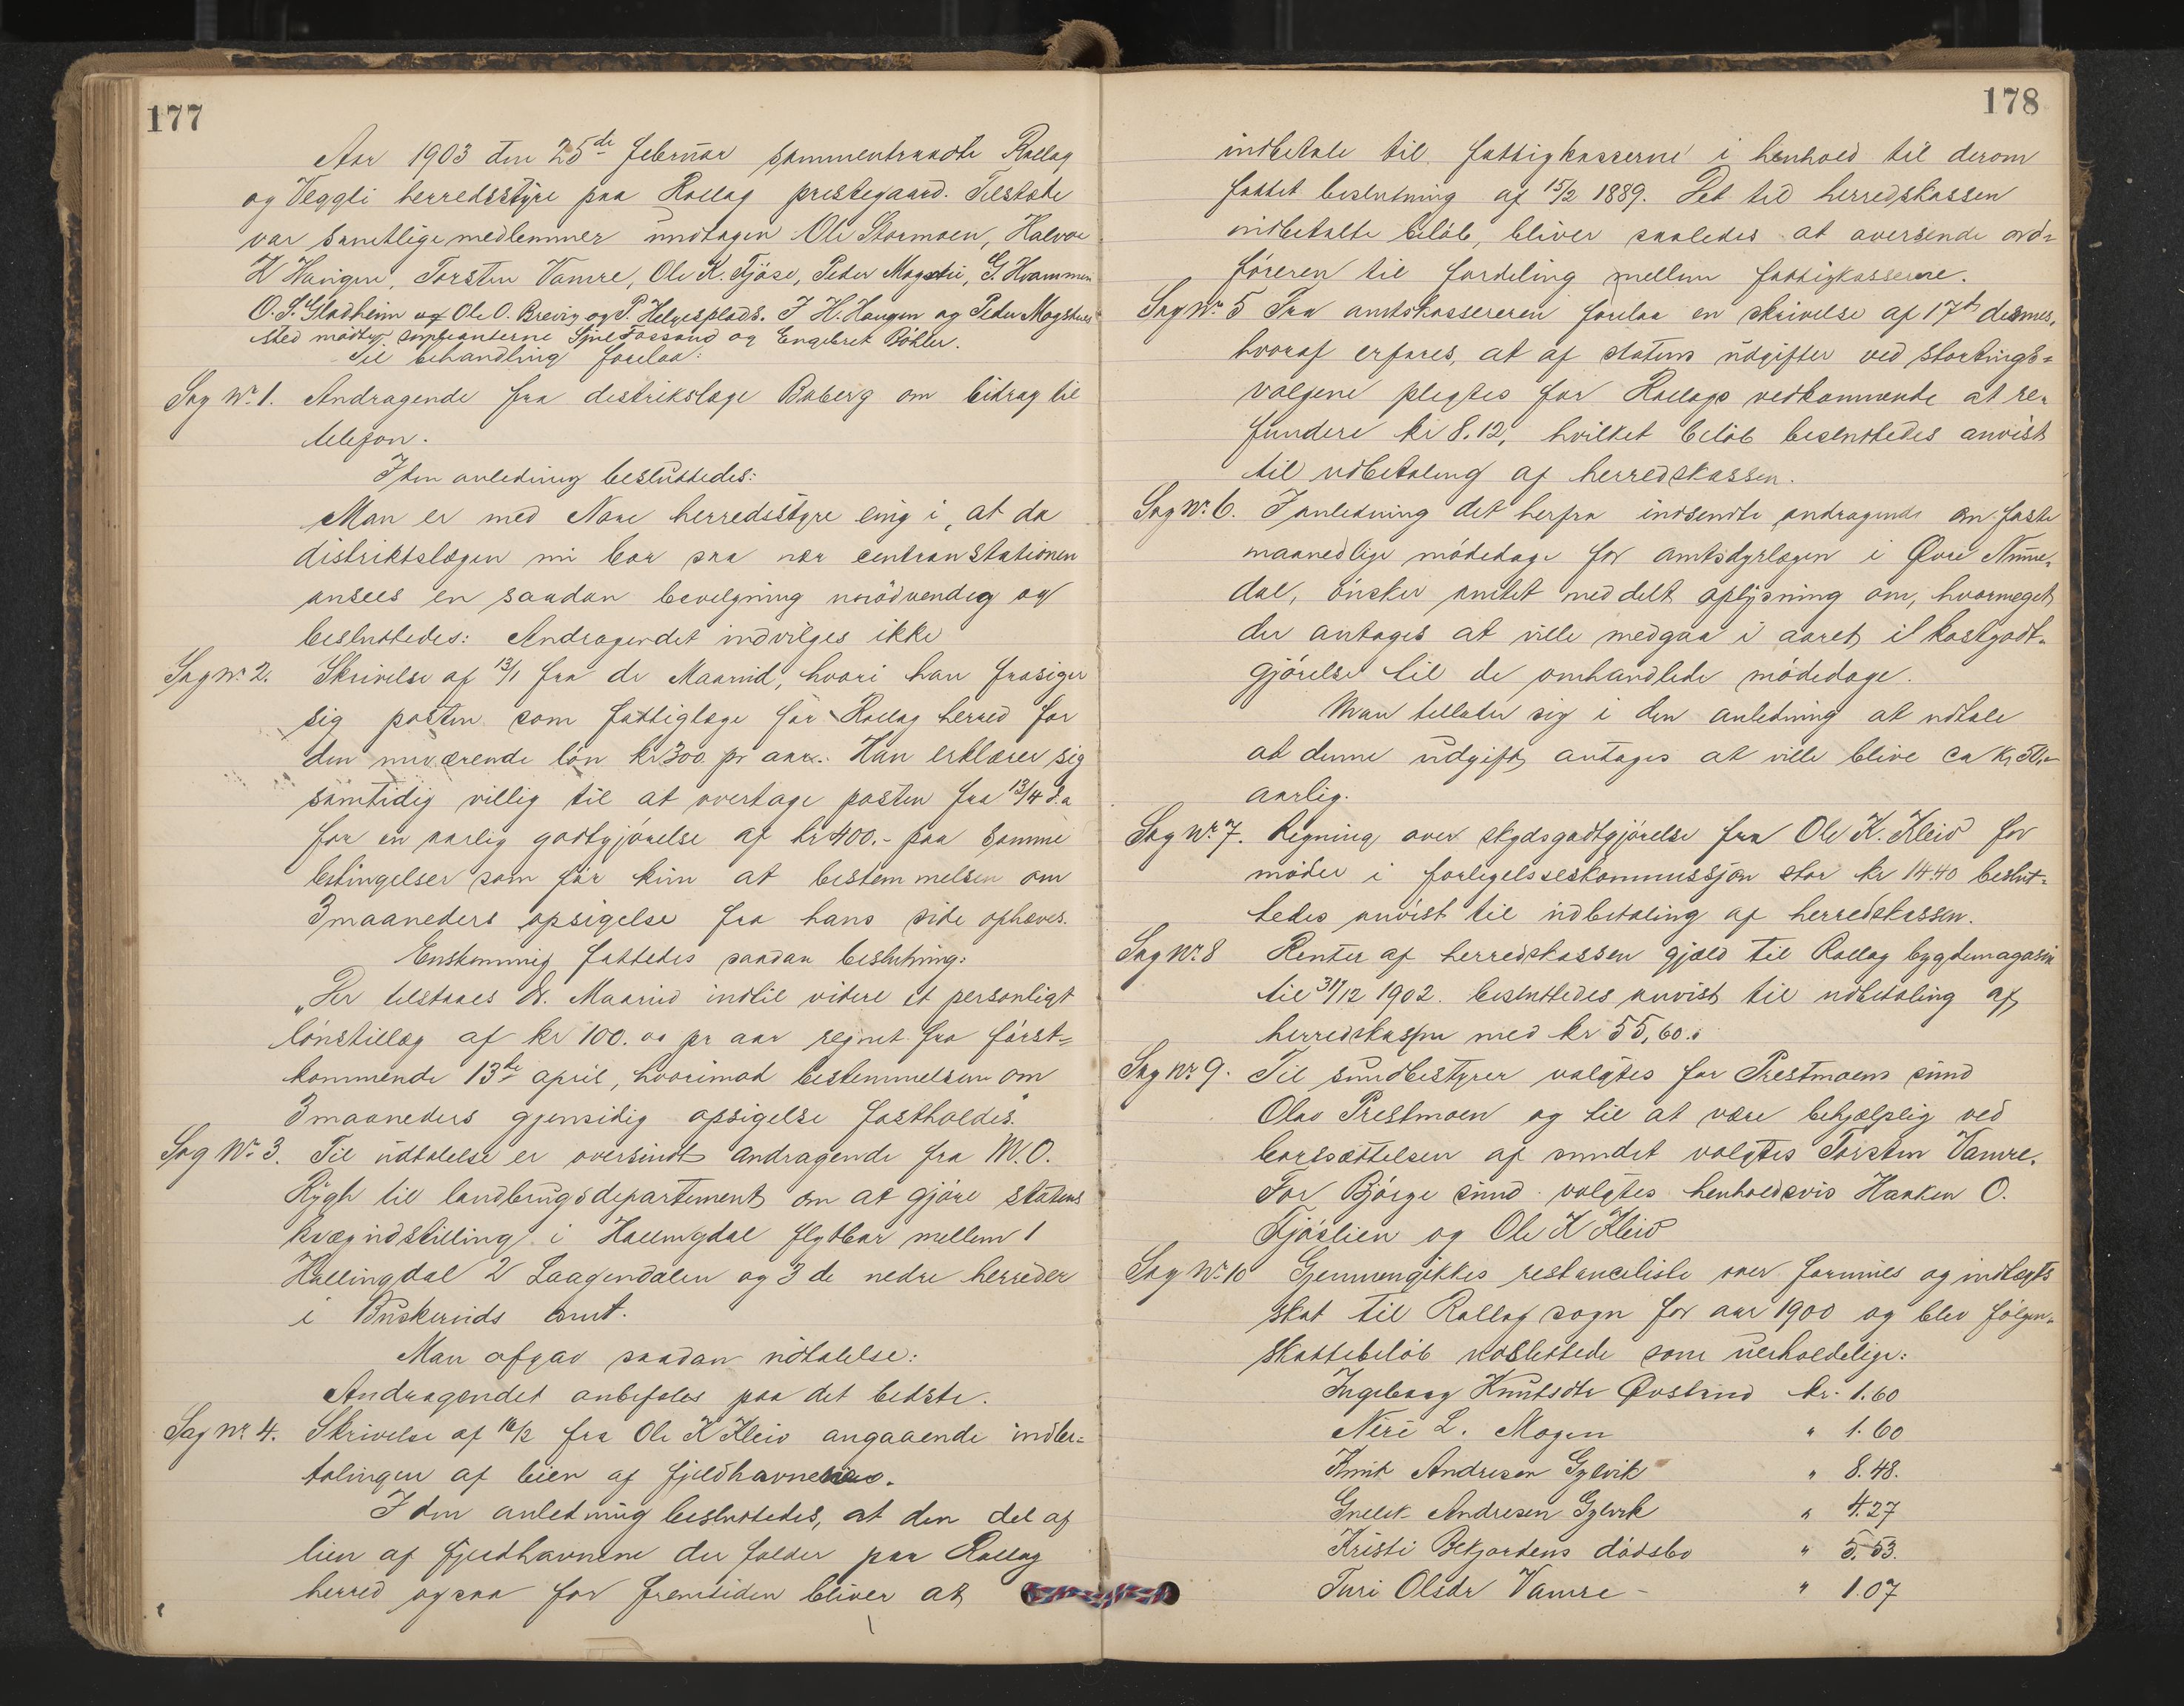 177
Aar 1903 den 25de februar sammentraadte Rollag
og Veggli herredsstyre paa Rollag prestegaard. Tilstede
var samtlige medlemmer undtagen Ole Stormoen, Halvor
H Haugen, Torsten Vamre, Ole K. Fjøse, Peder Mogstu, G. Hvammen
O. S. Gladheim og Ole O. Brevig og P. Helgesplads. I H. Haugen og Peder Mogstues
sted mødte suppleanterne Fossand og Engebret Bøhler.
Til behandling forelaa:
Sag Nr. 1. Andragende fra destrikslæge Boberg om bidrag til
telefon.
I den anledning besluttedes:
Man er med Nore herredsstyre enig i, at da
distriktslægen nu bor saa nær centranstationen
ansees en saadan bevilgning unødvendig og
besluttedes: Andragendet indvilges ikke
Sag Nr. 2. Skrivelse af 13/1 fra dr Maarud, hvori han frasiger
sig posten som fattiglæge for Rollag herred for
den nuværende løn kr 300 pr aar. Han erklærer sig
samtidig villig til at overtage posten fra 13/4 d.a
for en aarlig godtgjørelse af kr 400.- paa samme
betingelser som før kun at bestemmelsen om
3 maaneders opsigelse fra hans side ophæves.
Enstemmig fattedes saadan beslutning:
"Der tilstaaes Dr. Maarud indtil videre et personligt
lønstillæg af kr 100.00 pr aar regnet fra først=
kommende 13de april, hvorimod bestemmelsen om
3 maaneders gjensidig opsigelse fastholdes."
Sag Nr. 3. Til udtalelse er oversendt andragende fra M. O.
Rygh til landbrugsdepartement om at gjøre statens
kvægudstilling i Hallingdal flytbar mellem 1
Hallingdal 2 Laagendalen og 3 de nedre herreder
i Buskeruds amt.
Man afgav saadan udtalelse:
Andragendet anbefales paa det bedste.
Sag Nr. 4. Skrivelse af 16/2 fra Ole K Kleiv angaaende indbe=
talingen af leien af fjeldhavnene.
I den anledning besluttedes, at den del af
leien af fjeldhavnene der falder paa Rollag
herred ogsaa for fremtiden bliver at
178
indbetale til fattigkasserne i henhold til derom
fattet beslutning af 15/2 1889. Det til herredskassen
indbetalte beløb, bliver saaledes at oversende ord=
føreren til fordeling mellem fattigkasserne.
Sag Nr. 5 Fra amtskassereren forelaa en skrivelse af 17de dennes,
hvoraf erfares, at af statens udgifter ved stortings=
valgene pligtes for Rollags vedkommende at re=
fundere kr 8.12, hvilket beløb besluttedes anvist
til udbetaling af herredskassen.
Sag Nr. 6. I anledning det herfra indsendte andragende om faste
maanedlige mødedage for amtsdyrlægen i Øvre Nume=
dal, ønsker amtet meddelt oplysning om, hvormeget
der antages at ville medgaa i aaret til kostgodt=
gjørelse til de omhandlede mødedage.
Man tillader sig i den anledning at udtale
at denne udgift antages at ville blive ca kr 50,-
aarlig.
Sag Nr. 7. Regning over skydsgodtgjørelse fra Ole K. Kleiv for
møder i forligelseskommissjon stor kr 14.40 beslut=
tedes anvist til udbetaling af herredskassen.
Sag Nr 8 Renter af herredskassen gjæld til Rollag bygdemagasin
til 31/12 1902. besluttedes anvist til udbetaling af
herredskassen med kr 55,60.
Sag nr 9. Til sundbestyrer valgtes for Prestmoens sund
Olav Prestmoen og til at være behjælpelig ved
bortsættelsen af sundet valgtes Torsten Vamre.
For Bjørge sund valgtes henholdsvis Haaken O.
Fjøslien og Ole K Kleiv
Sag Nr. 10 Gjennemgikkes restanceliste over formues og indtægts
skat til Rollag sogn for aar 1900 og blev følgen=
skattebeløb udslettede som uerholdelige:
Ingeborg Knutsdtr Øvstrud kr. 1.60
Niri L. Mogen " 1.60
Knut Andresen Gylvik " 8.48.
Andresen Gylvik " 4.27
Kristi dødsbo " 5.53.
Turi Olsdr Vamre - " 1.07